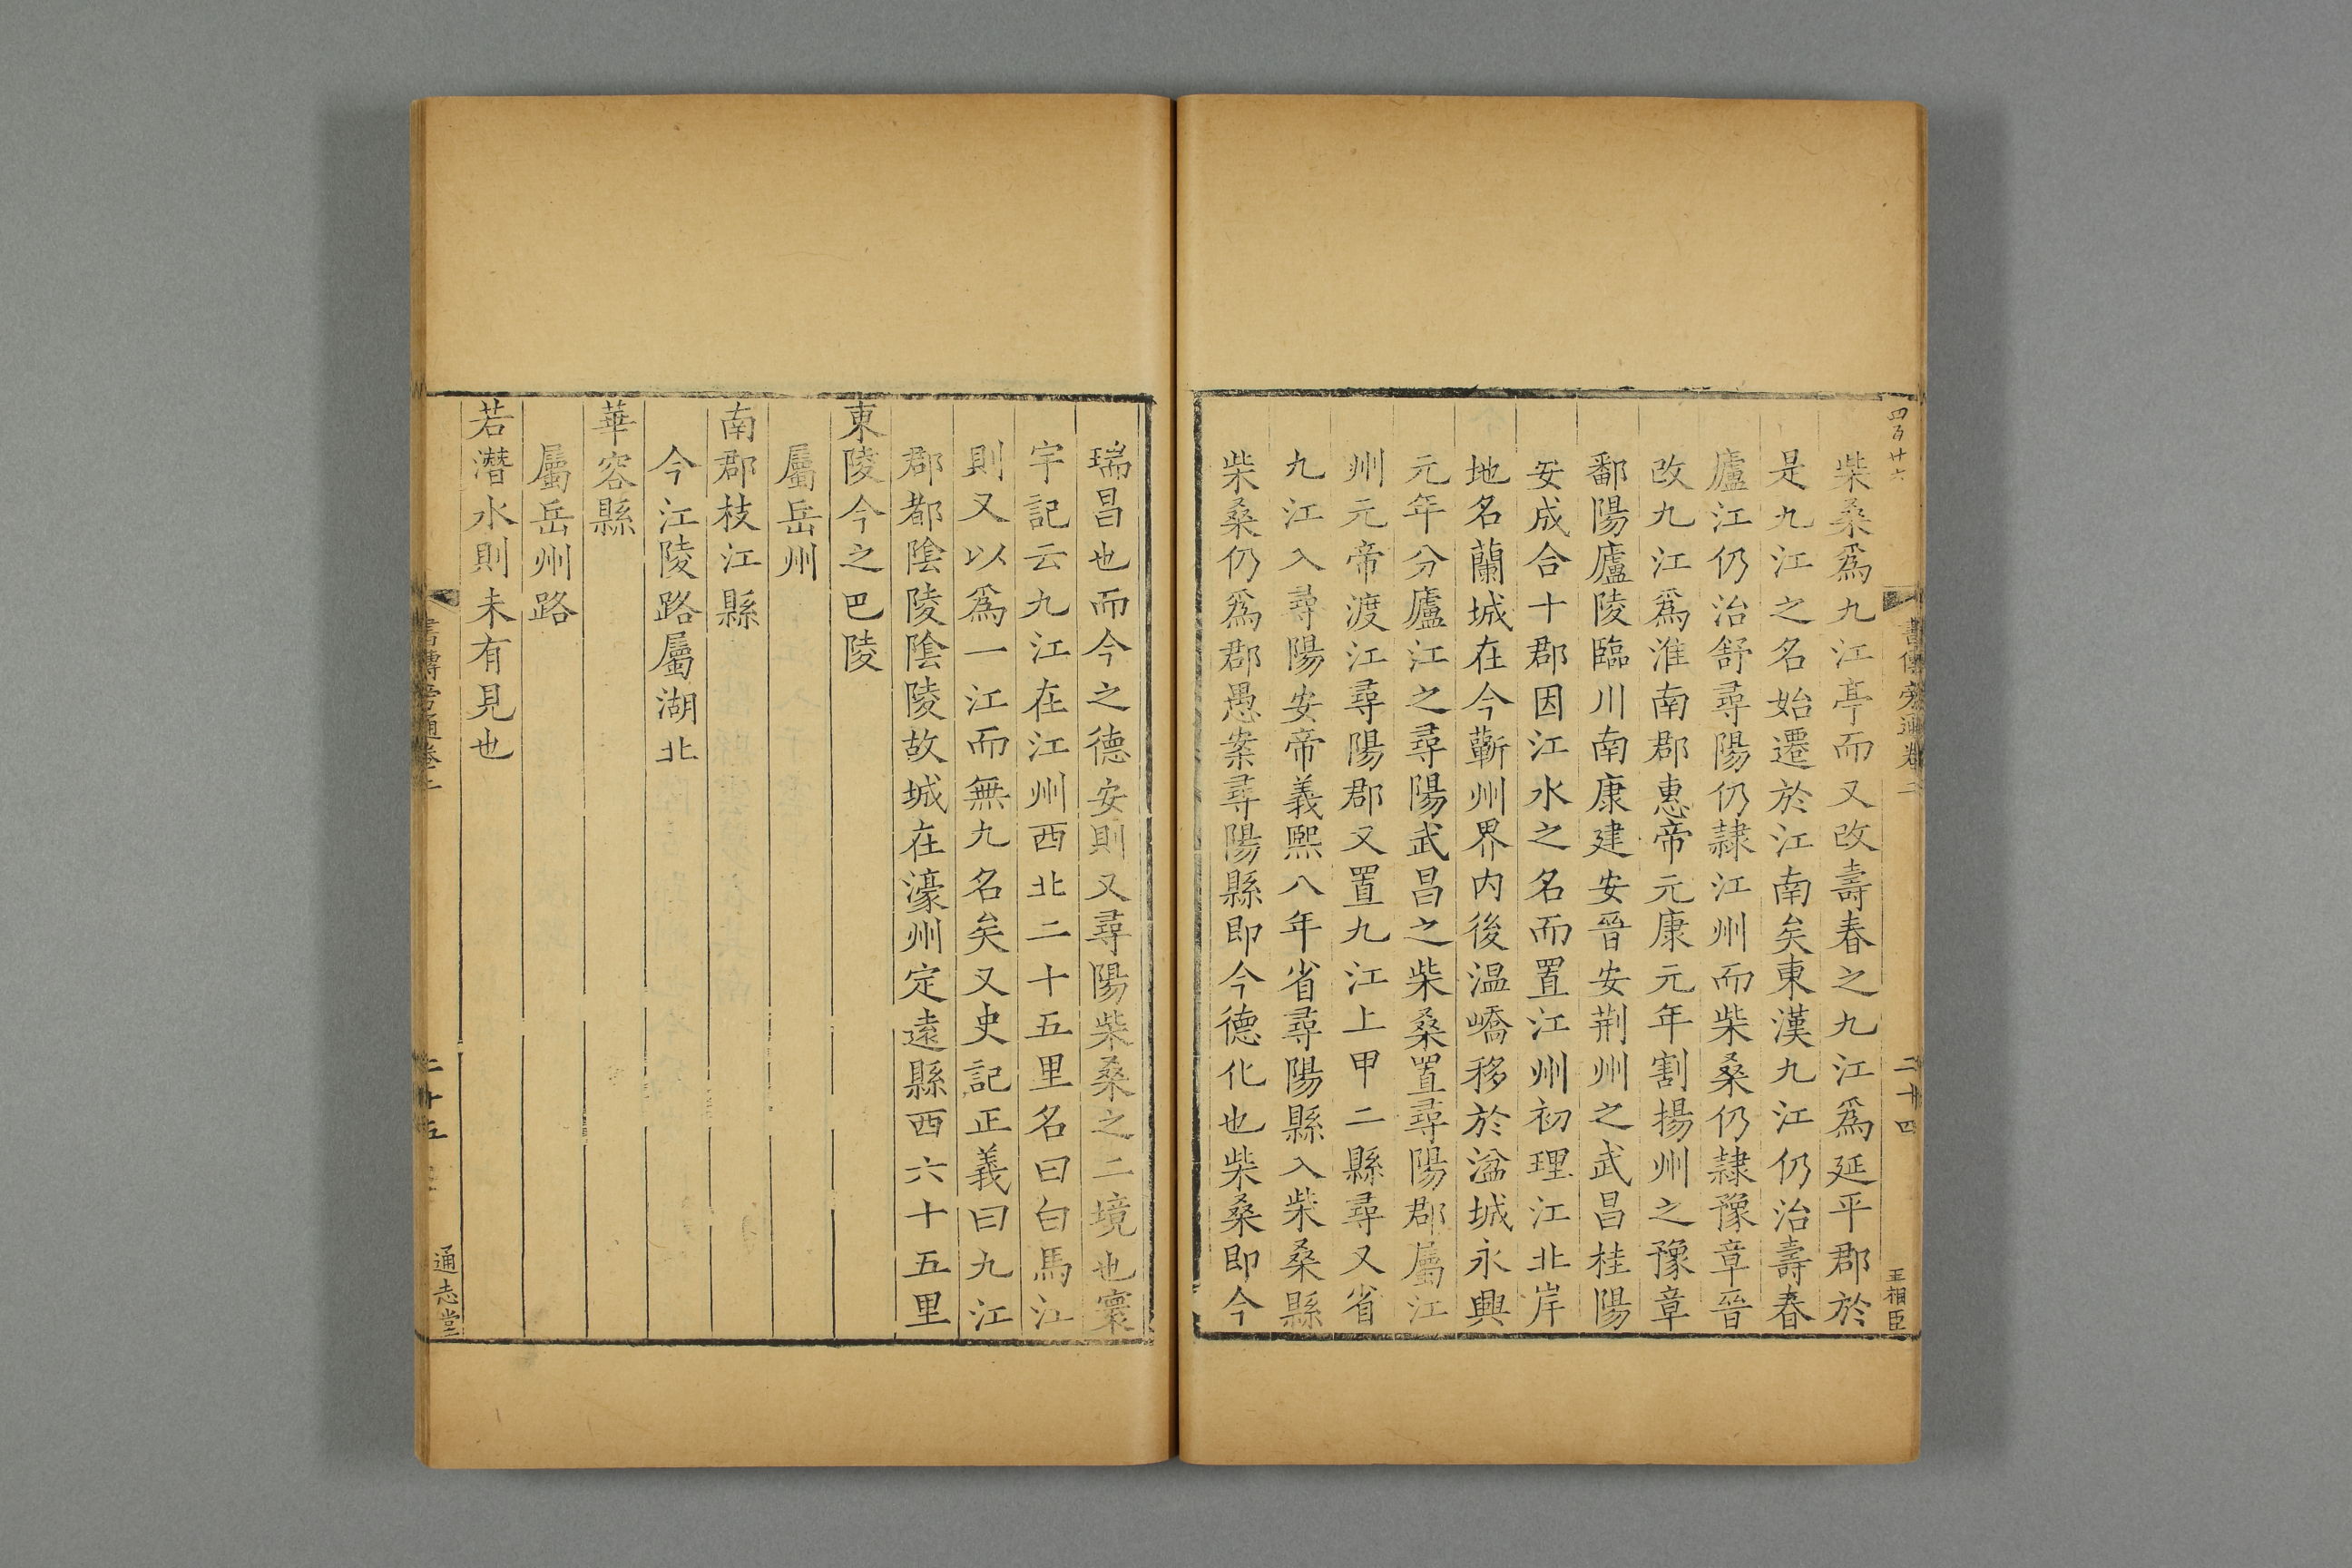 四百廿六
書傳旁通卷二
二十四
王相臣
柴桑爲九江亭而又改壽春之九江爲延平郡於
是九江之名始遷於江南矣東漢九江仍治壽春
廬江仍治舒尋陽仍隷江州而柴桑仍隷豫章晉
改九江爲淮南郡惠帝元康元年割揚州之豫章
鄱陽廬陵臨川南康建安晉安荆州之武昌桂陽
安成合十郡因江水之名而置江州初理江北岸
地名蘭城在今蘄州界内後温嶠移於湓城永興
元年分廬江之尋陽武昌之柴桑置尋陽郡屬江
州元帝渡江尋陽郡又置九江上甲二縣尋又省
九江入尋陽安帝義熙八年省尋陽縣入柴桑縣
柴桑仍爲郡愚案尋陽縣即今德化也柴桑即今
瑞昌也而今之德安則又尋陽柴桑之二境也寰
宇記云九江在江州西北二十五里名曰白馬江
則又以爲一江而無九名矣又史記正義曰九江
郡都陰陵陰陵故城在濠州定遠縣西六十五里
東陵今之巴陵
屬岳州
南郡枝江縣
今江陵路屬湖北
華容縣
屬岳州路
若潛水則未有見也
書傳旁通卷二
二十五
通志堂